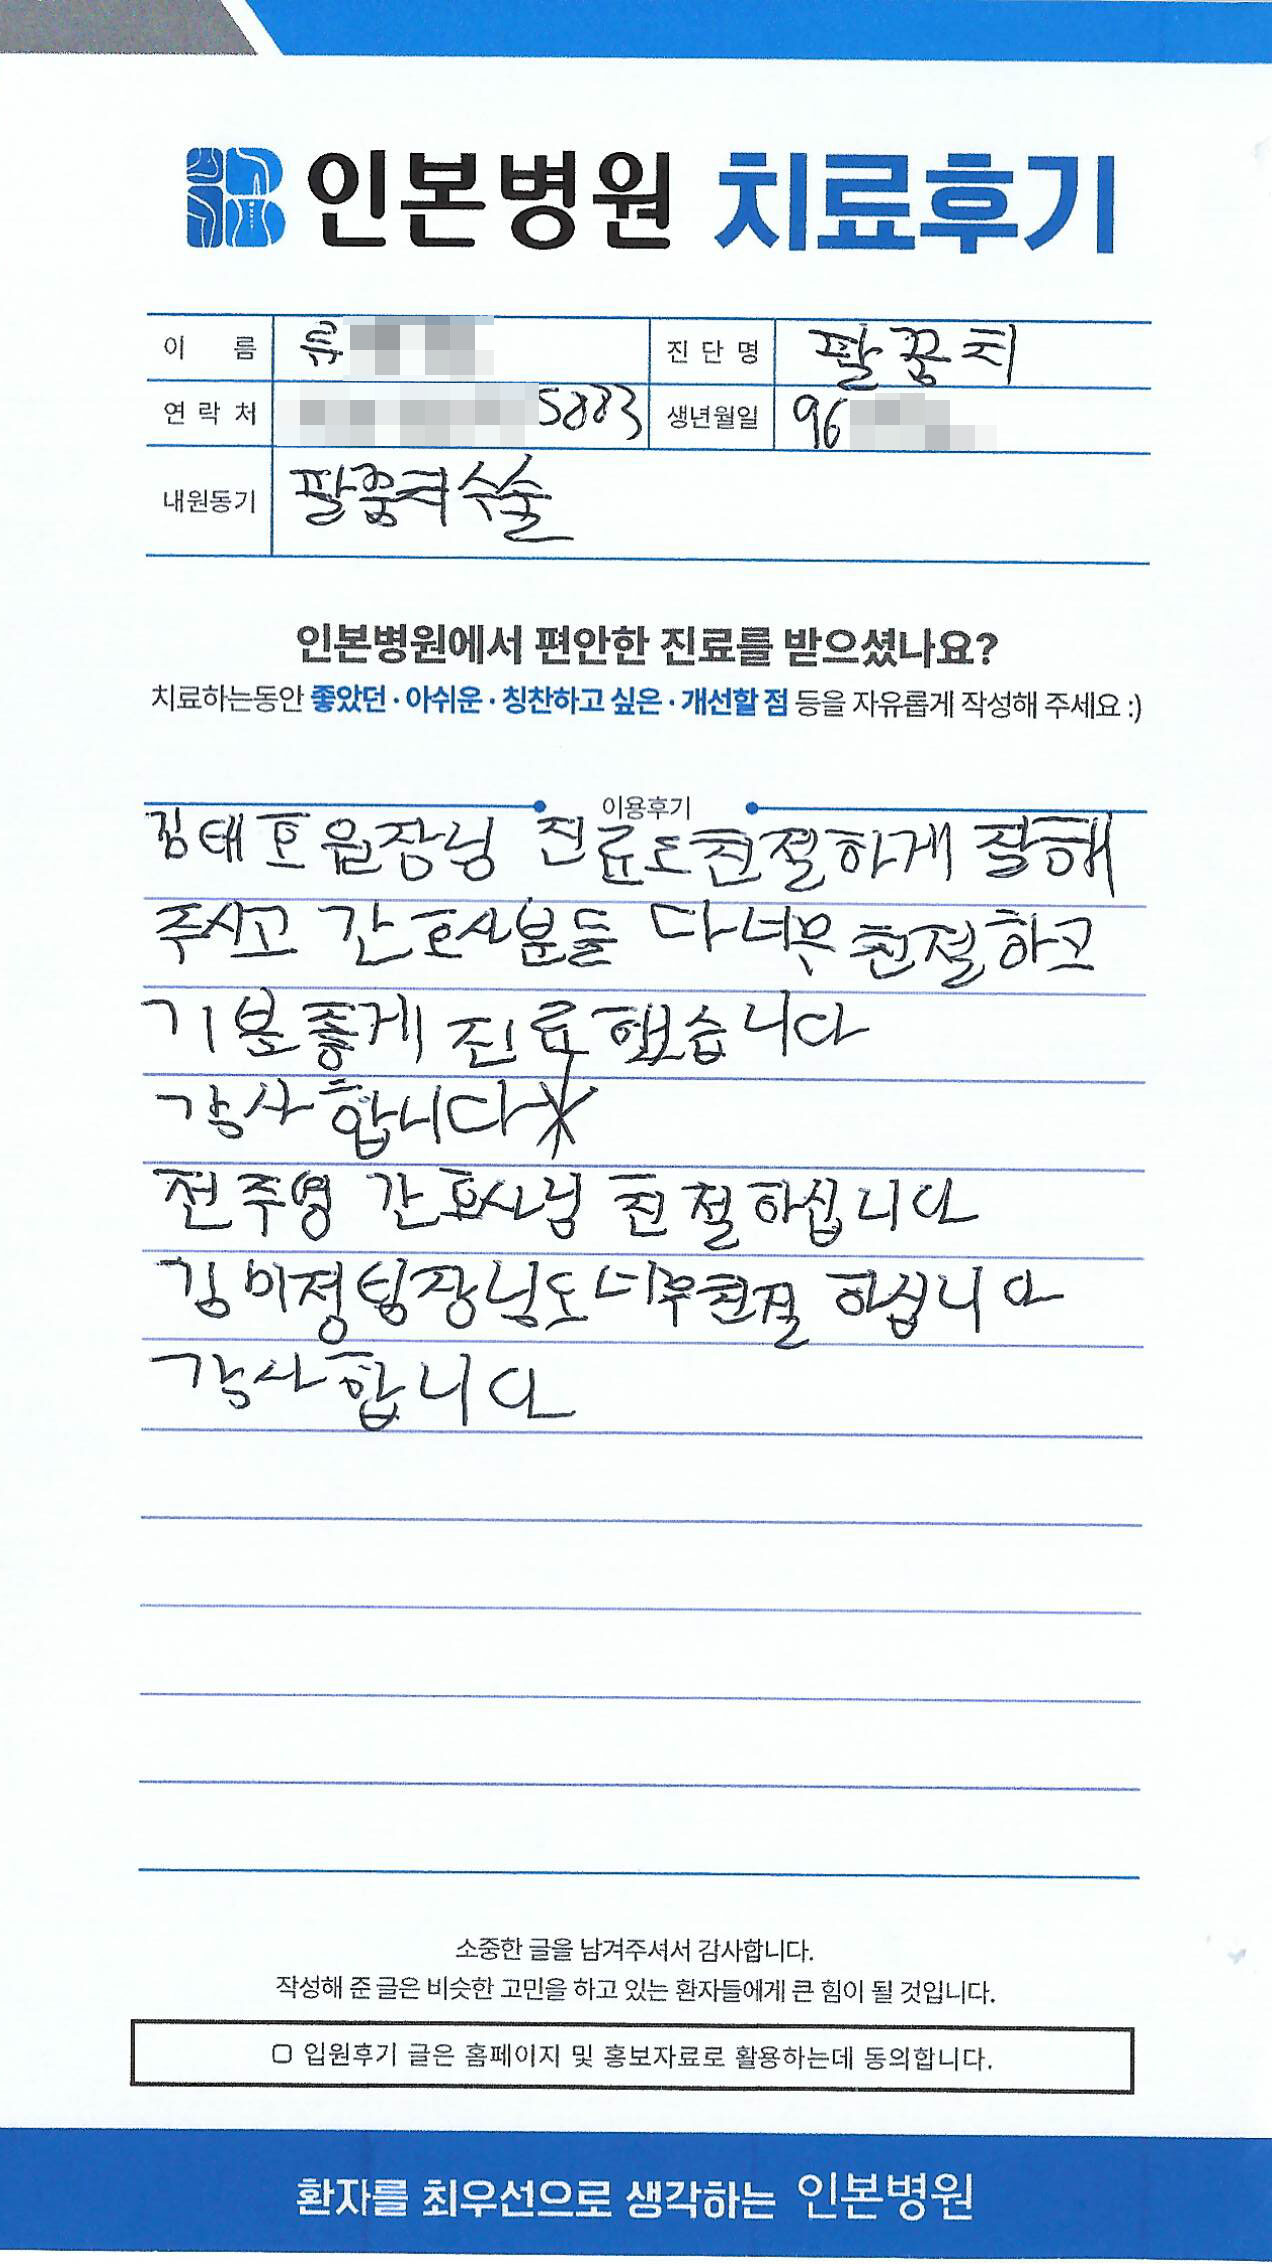 인본병원 치료후기
이 름 류 진 단 명 팔꿈치
연 락 처 5883 생년월일 96
내원동기 팔꿈치수술
인본병원에서 편안한 진료를 받으셨나요?
치료하는동안 좋았던 · 아쉬운 · 칭찬하고 싶은 · 개선할 점 등을 자유롭게 작성해 주세요 :)
이용후기
김태호원장님 진료도친절하게 잘해
주시고 간호사분들 다 너무 친절하고
기분좋게 진료했습니다
감사합니다
전주영 간호사님 친절하십니다
김미정팀장님도 너무친절 하십니다
감사합니다
소중한 글을 남겨주셔서 감사합니다.
작성해 준 글은 비슷한 고민을 하고 있는 환자들에게 큰 힘이 될 것입니다.
입원후기 글은 홈페이지 및 홍보자료로 활용하는데 동의합니다.
환자를 최우선으로 생각하는 인본병원